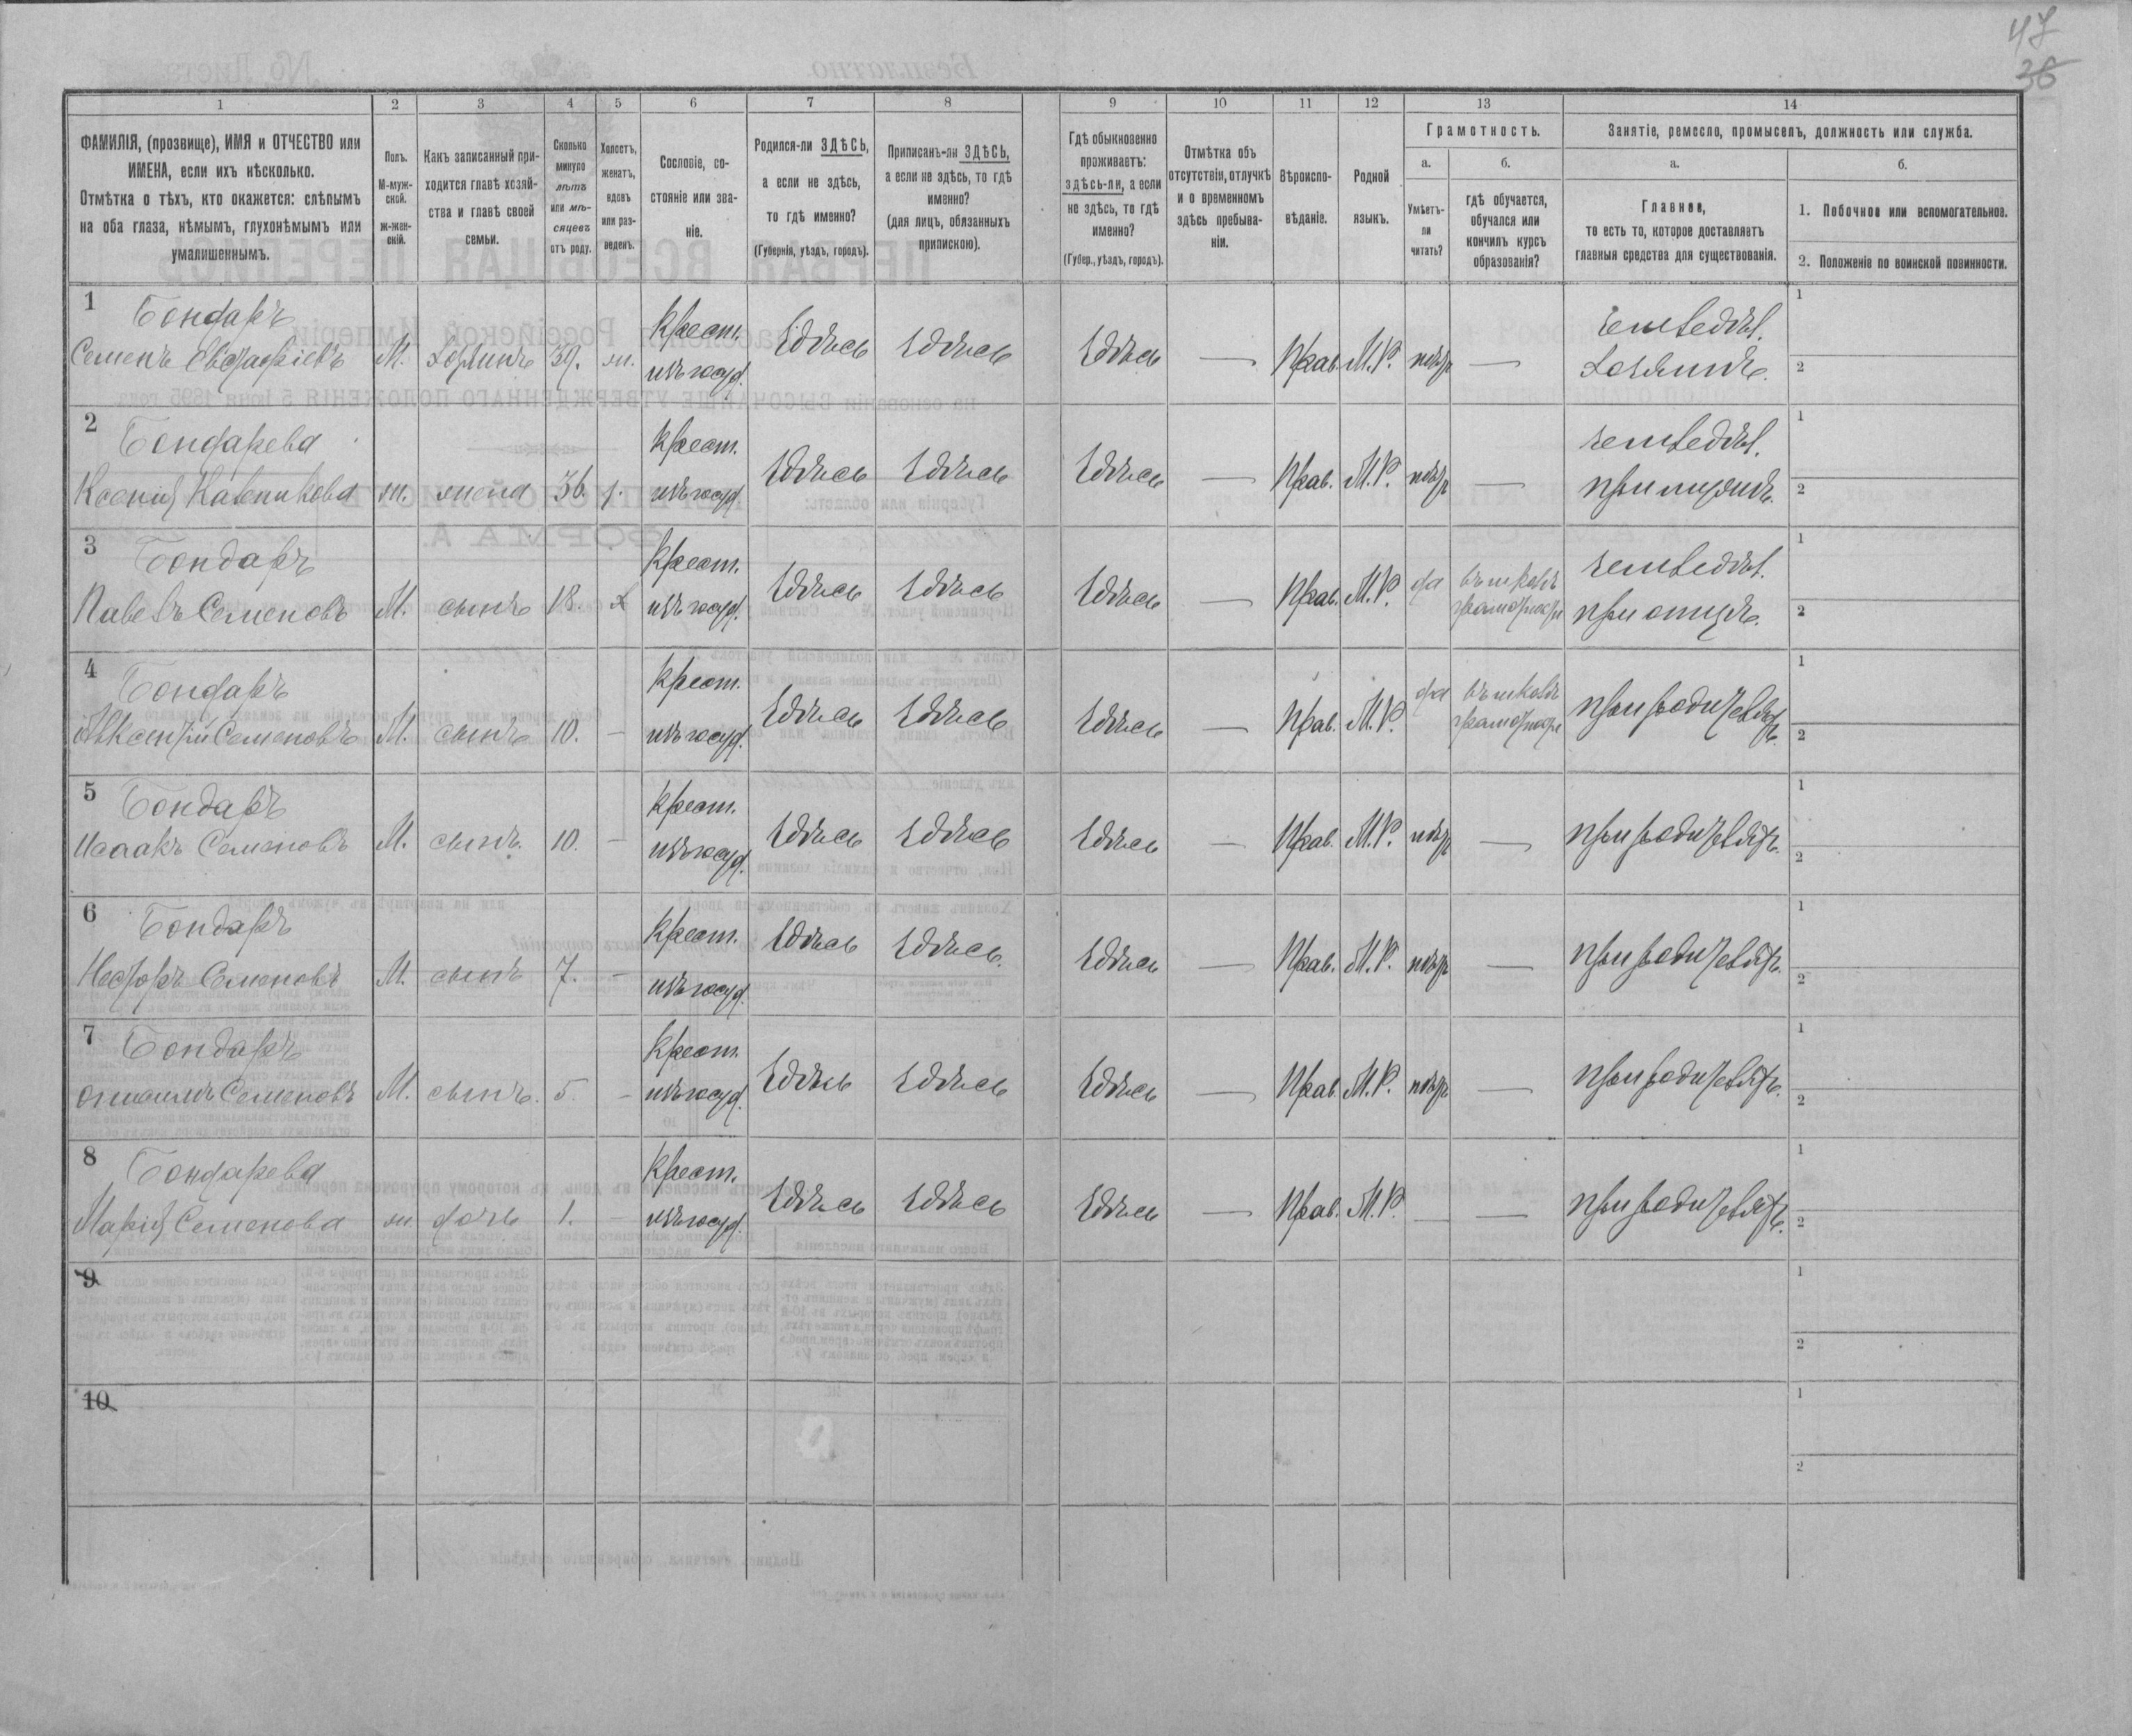 47
36
1 2 3 4 5 6 7 8 9 10 11 12 13 14
ФАМИЛІЯ, (прозвище), ИМЯ и ОТЧЕСТВО или
ИМЕНА, если ихъ нѣсколько.
Отмѣтка о тѣхъ, кто окажется: слѣпымъ
на оба глаза, нѣмымъ, глухонѣмымъ или
умалишеннымъ.
Полъ.
М-муж-
ской.
ж-жен-
скій.
Какъ записанный при-
ходится главѣ хозяй-
ства и главѣ своей
семьи.
Сколько
минуло
лѣтъ
или мѣ-
сяцевъ
отъ роду.
Холостъ,
женатъ,
вдовъ
или раз-
веденъ.
Сословіе, со-
стояніе или зва-
ніе.
Родился-ли ЗДѢСЬ,
а если не здѣсь,
то гдѣ именно?
(Губернія, уѣздъ, городъ).
Приписанъ-ли ЗДѢСЬ,
а если не здѣсь, то гдѣ
именно?
(для лицъ, обязанныхъ
припискою).
Гдѣ обыкновенно
проживаетъ:
здѣсь-ли, а если
не здѣсь, то гдѣ
именно?
(Губер., уѣздъ, городъ).
Отмѣтка объ
отсутствіи, отлучкѣ
и о временномъ
здѣсь пребыва-
ніи.
Вѣроиспо-
вѣданіе.
Родной
языкъ.
Грамотность.
а.
Умѣетъ-
ли
читать?
б.
гдѣ обучается,
обучался или
кончилъ курсъ
образованія?
Занятіе, ремесло, промыселъ, должность или служба.
а.
Главное,
то есть то, которое доставляетъ
главныя средства для существованія.
б.
1. Побочное или вспомогательное.
2. Положеніе по воинской повинности.
1 Бондаръ Крест. земледѣл. 1
Семенъ М. хозяинъ 39. ж. изъ госуд. Здѣсь Здѣсь Здѣсь — Прав. М.Р. нѣтъ — хозяинъ. 2
2 Бондарева Крест. земледѣл. 1
Ксенія ж. жена 36. з. изъ госуд. Здѣсь Здѣсь Здѣсь — Прав. М.Р. нѣтъ — при мужѣ. 2
3 Бондаръ Крест. въ школѣ земледѣл. 1
Павелъ Семеновъ М. сынъ 18. х изъ госуд. Здѣсь Здѣсь Здѣсь — Прав. М.Р. да грамотности при отцѣ. 2
4 Бондаръ Крест. въ школѣ 1
Авксентій Семеновъ М. сынъ 10. – изъ госуд. Здѣсь Здѣсь Здѣсь — Прав. М.Р. да грамотности при родителяхъ. 2
5 Бондаръ Крест. 1
Исаакъ Семеновъ М. сынъ. 10. – изъ госуд. Здѣсь Здѣсь Здѣсь — Прав. М.Р. нѣтъ — при родителяхъ. 2
6 Бондаръ Крест. 1
Несторъ Семеновъ М. сынъ 7. – изъ госуд. Здѣсь Здѣсь. Здѣсь — Прав. М.Р. нѣтъ — при родителяхъ. 2
7 Бондаръ Крест. 1
Семеновъ М. сынъ. 5. – изъ госуд. Здѣсь Здѣсь Здѣсь — Прав. М.Р. нѣтъ — при родителяхъ. 2
8 Бондарева Крест. 1
Марія Семенова ж дочь 1. – изъ госуд. Здѣсь Здѣсь Здѣсь — Прав. М.Р. — — при родителяхъ. 2
9 1
2
10 1
2